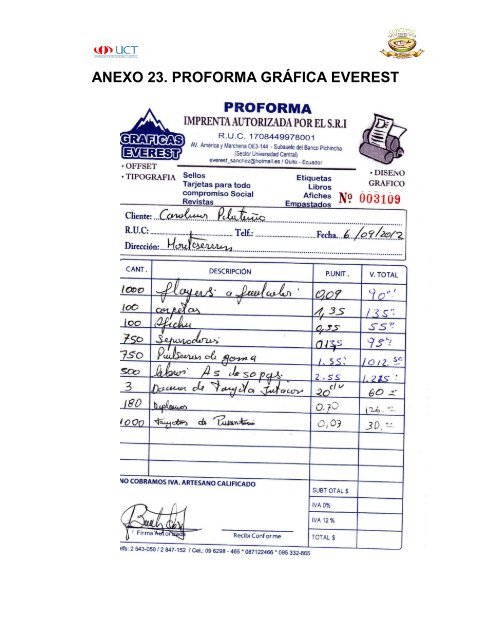 UCT
ANEXO 23. PROFORMA GRÁFICA EVEREST
PROFORMA
IMPRENTA AUTORIZADA POR EL S.R.I
R.U.C. 1708449978001
AV. América y Marchena OE3-144 - Subsuelo del Banco Pichincha
(Sector Universidad Central)
everest_sanchez@hotmail.es / Quito - Ecuador
GRAFICAS
EVEREST
• OFFSET
• TIPOGRAFIA
Sellos
Tarjetas para todo
compromiso Social
Revistas
Etiquetas
Libros
Afiches
Empastados
• DISENO
GRAFICO
Nº 003109
Cliente: Carolina
R.U.C: Telf.: Fecha. 6/09/2012
Dirección:
CANT. DESCRIPCIÓN P.UNIT. V. TOTAL
1000 flayers a 0,09 90
100 carpetas 1,35 135
100 Afiches 0,55 55
750 Separadores 95
750 Pulseras de goma 1.35 1012.50
500 As de sopas 2.55 1.275
3 de Tarjeta 20 c/u 60
180 Diplomas 0.70 126
1000 Tarjetas de 0,03 30
NO COBRAMOS IVA. ARTESANO CALIFICADO
SUBT OTAL $
IVA 0%
IVA 12 %
TOTAL $
Firma Autorizada Recibi Conforme
Telfs: 2 543-050 / 2 847-152 / Cel.: 09 6298 - 465 * 087122466 * 095 332-865